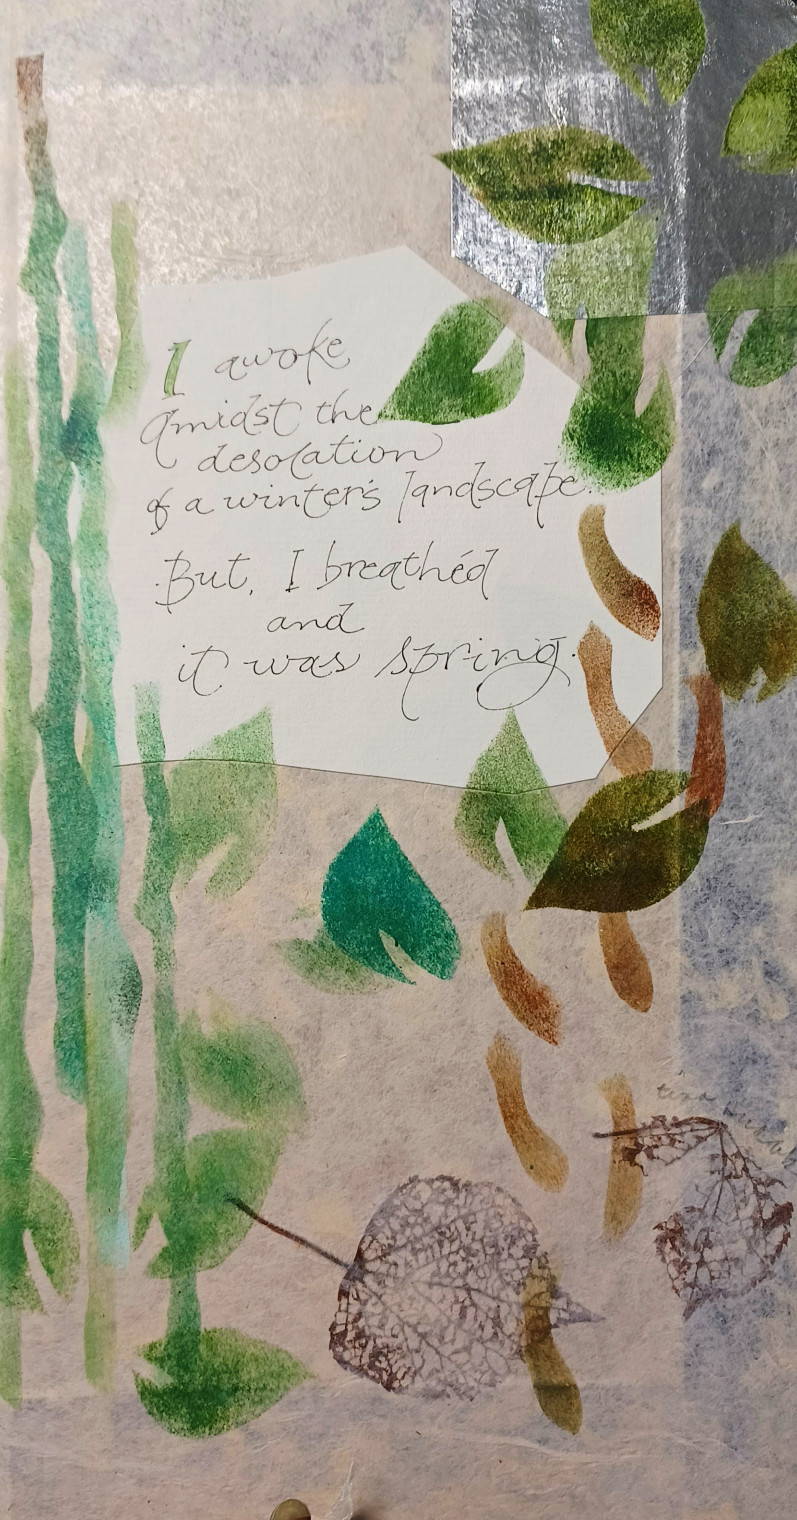 I awoke
amidst the
desolation
of a winter's landscape.
But, I breathéd
and
it was spring.